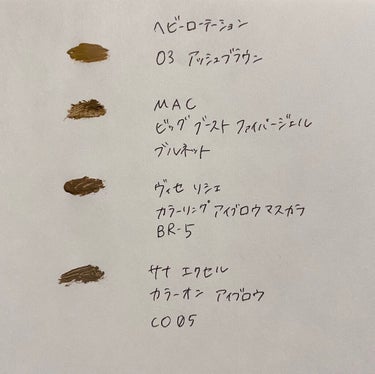 ヘビーローテーション
03 アッシュブラウン
MAC
ビッグ ブースト ファイバージェル
ブルネット
ヴィセ リシェ
カラーリング アイブロウ マスカラ
BR-5
サナ エクセル
カラーオン アイブロウ
CO05